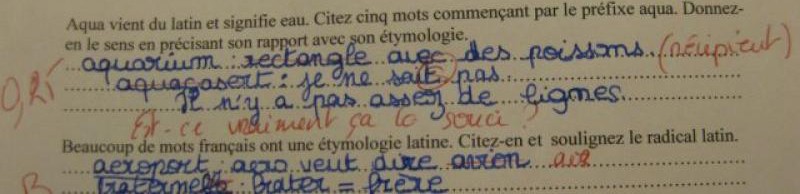 Aqua vient du latin et signifie eau. Citez cinq mots commençant par le préfixe aqua. Donnez-
en le sens en précisant son rapport avec son étymologie.
aquarium : rectangle avec des poissons. (récipient)
0,25
aquagasert : je ne sait pas.
Il n'y a pas assez de lignes.
Est-ce vraiment ça le souci ?
Beaucoup de mots français ont une étymologie latine. Citez-en et soulignez le radical latin.
aeroport : aero veut dire avion air
frater = frère